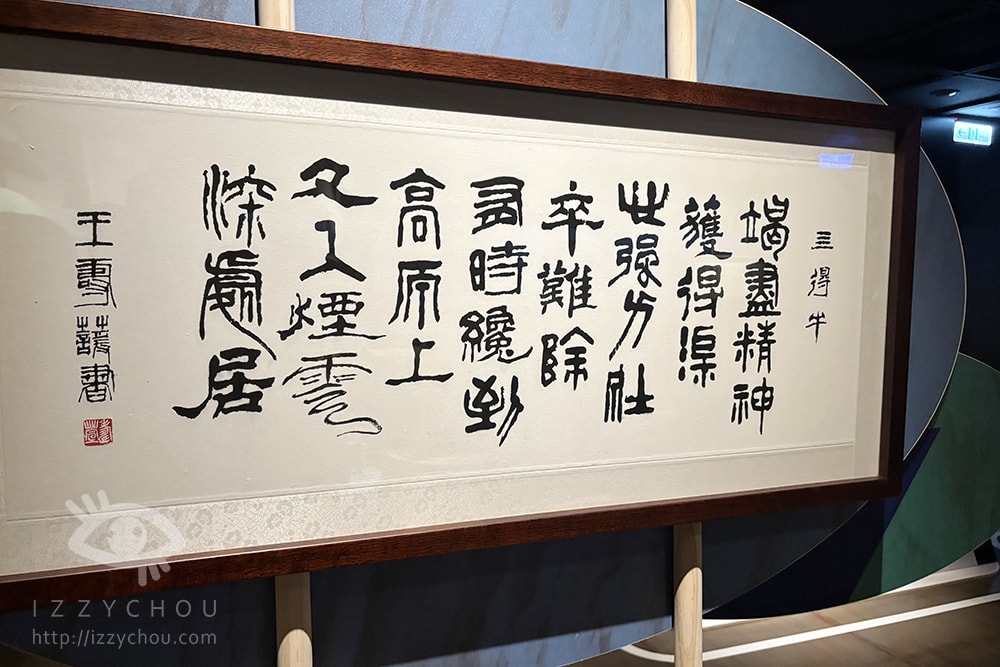 亖得牛
竭盡精神
獲得渠
心强力壯
卒難除
有時纔到
高原上
又入煙雲
深處居
王壽蘐書
IZZYCHOU
http://izzychou.com